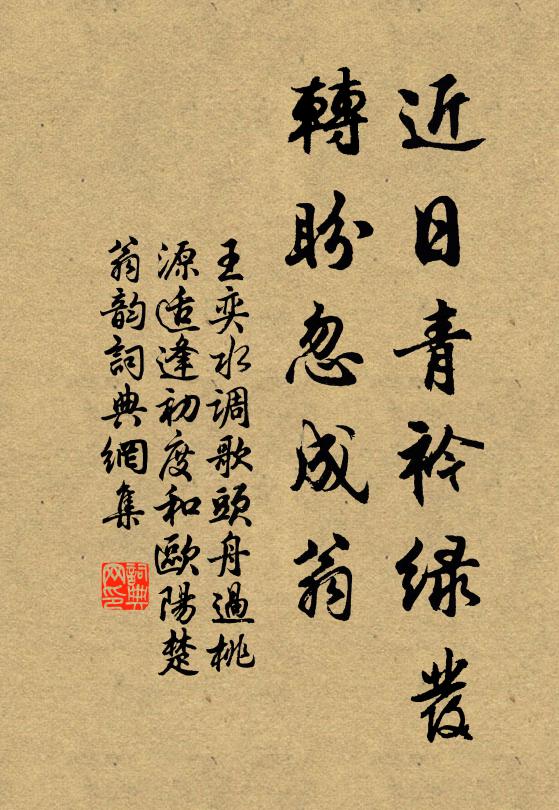 近日青衿绿發
轉盼忽成翁
王奕水调歌頭舟過桃
源适逢初度和歐陽楚
翁韵詞典網集
詞典网印